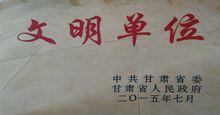 文明单位
中共甘肃省委
甘肃省人民政府
二〇一五年七月